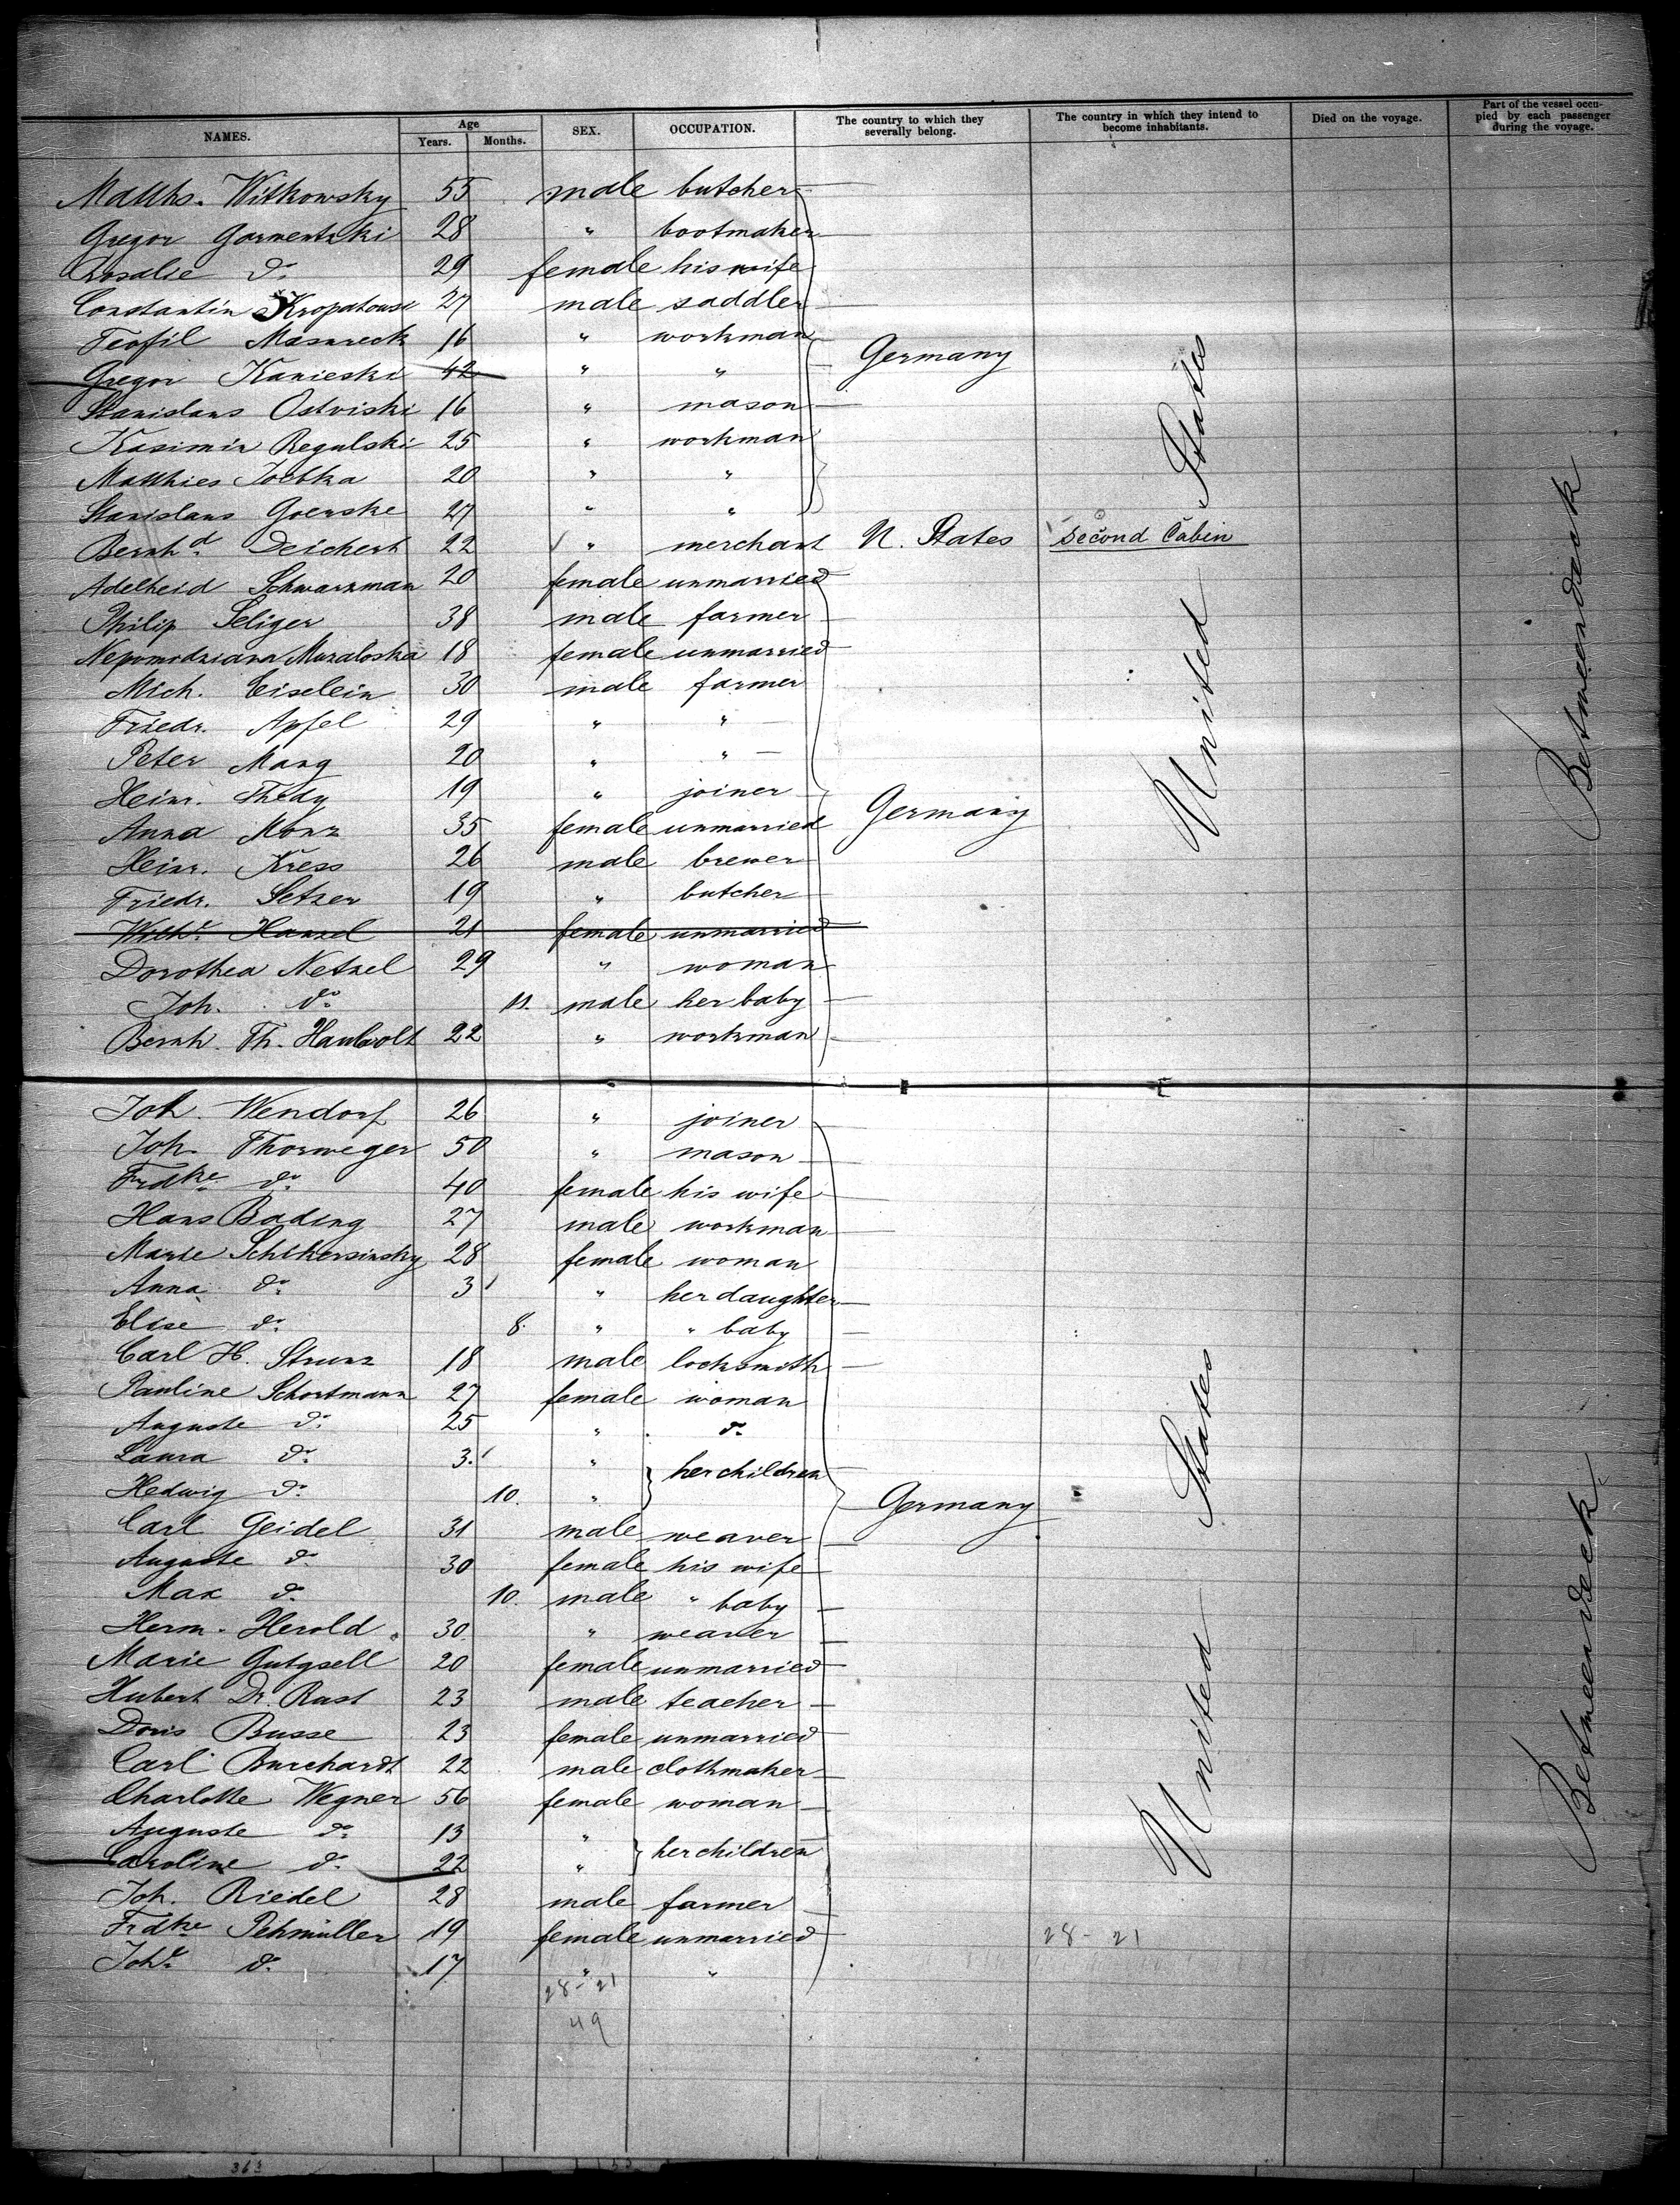 NAMES. Age Years. Months. SEX. OCCUPATION. The country to which they severally belong. The country in which they intend to become inhabitants. Died on the voyage. Part of the vessel occupied by each passenger during the voyage.
Matths. Witkowsky 55 male butcher
Gregor Garmentzki 28 " bootmaker
Rosalie do 29 female his wife
Constantin Kropatowski 27 male saddler
Teofil Masureck 16 " workman
Gregor Kanieski 42 " "
Germany
Stanislaus Ostviski 16 " mason
Kasimir Regulski 25 " workman
Matthies Joebka 20 " "
Stanislaus Goerske 27 " "
Bernhd Deichert 22 " merchant U. States Second Cabin
Adelheid Schwarzman 20 female unmarried
Philip Seliger 38 male farmer
Muraloska 18 female unmarried
Mich. Eiselein 30 male farmer
Friedr. Apfel 29 " "
Peter Mang 20 " "
Heinr. Thedy 19 " joiner
Germany
Anna Monz 35 female unmarried
Heinr. Kress 26 male brewer
Friedr. Setzer 19 " butcher
Wilhe Hansel 21 female unmarried
Dorothea Netzel 29 " woman
Joh. do 11. male her baby
Bernh. Th. Haubolt 22 " workman
United States
Betweendeck
Joh. Wendorf 26 " joiner
Joh. Thorweger 50 " mason
Frdke do 40 female his wife
Hans Bading 27 male workman
Marie Schikersinsky 28 female woman
Anna do 3 " her daughter
Elise do 8. " " baby
Carl H. Strunz 18 male locksmith
Pauline Schortmann 27 female woman
Auguste do 25 " do
Laura do 3. " her children
Hedwig do 10. "
Germany
Carl Geidel 31 male weaver
Auguste do 30 female his wife
Max do 10. male " baby
Herm. Herold 30 " weaver
Marie Gutgsell 20 female unmarried
Hubert Dr. Rast 23 male teacher
Doris Busse 23 female unmarried
Carl Burchardt 22 male clothmaker
Charlotte Wegner 56 female woman
Auguste do 13 " her children
Caroline do 22 "
Joh. Riedel 28 male farmer
Frdke Pehmüller 19 female unmarried
Johe do 17 " "
United States
Betweendeck
28-21
28-21
49
363